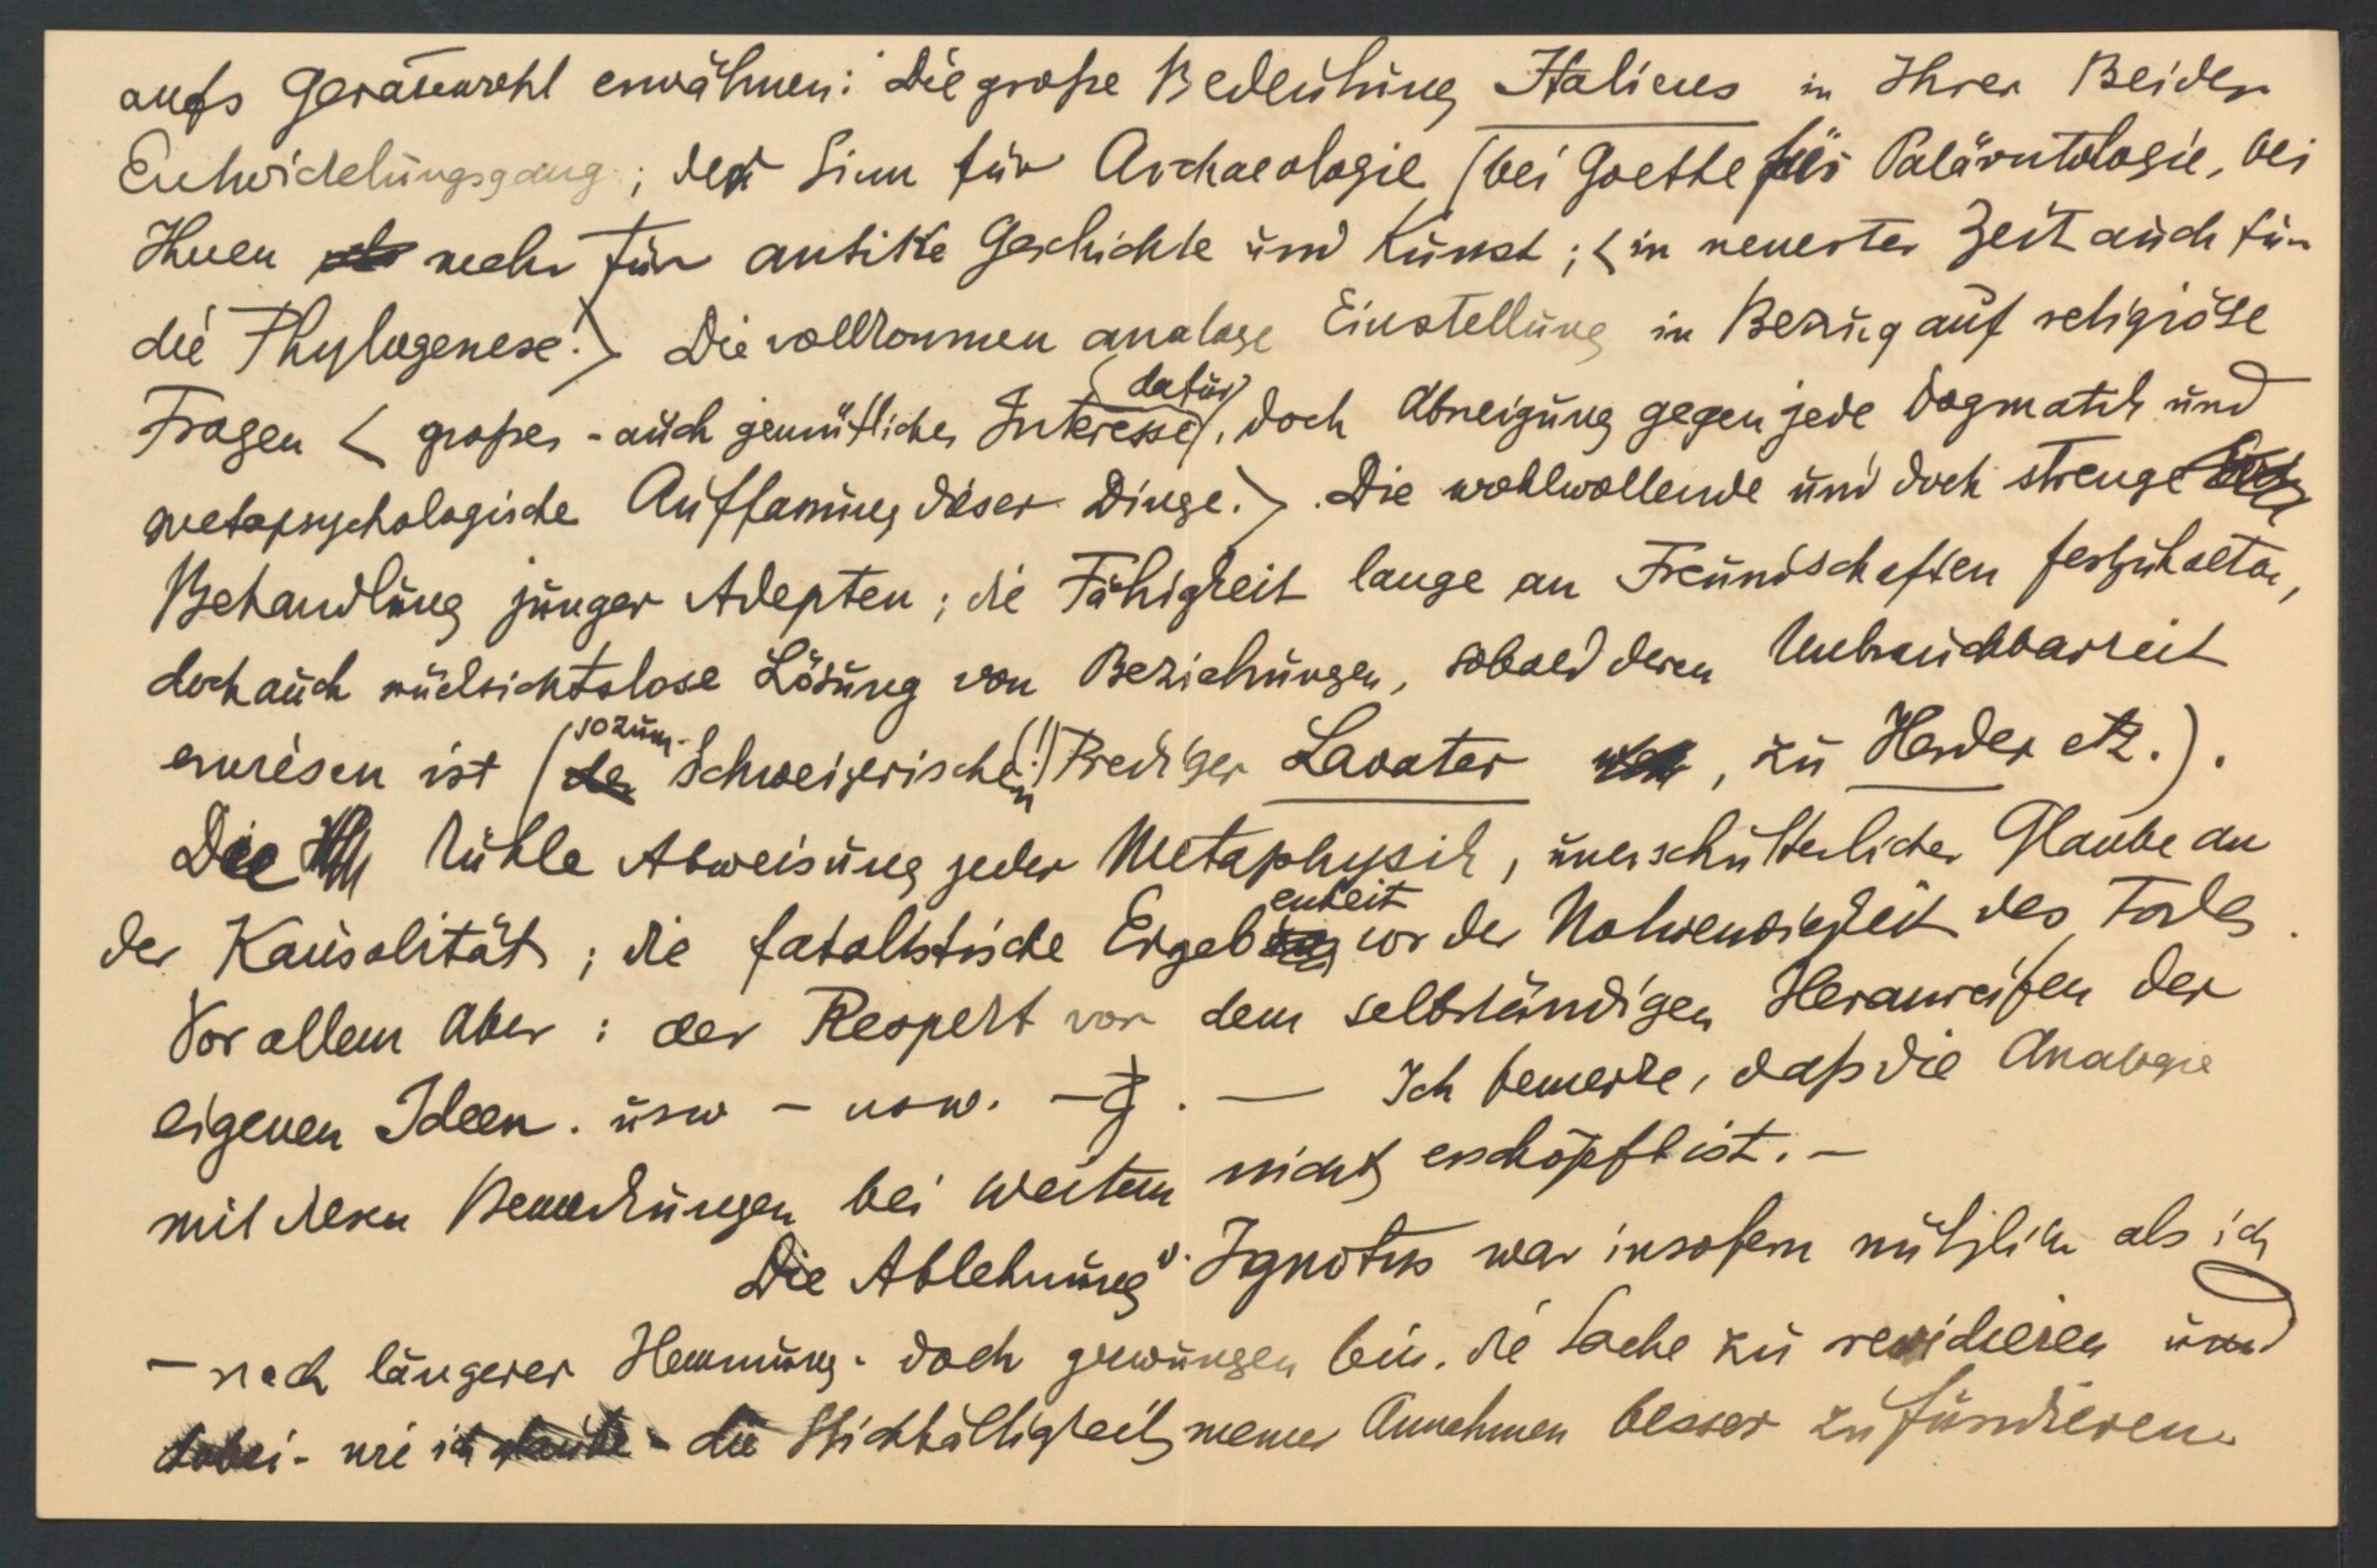 aufs Geratewohl erwähnen: Die große Bedeutung Italiens in Ihrer Beider
Entwickelungsgang; der Sinn für Archaeologie (bei Goethe für Paläontologie, bei
Ihnen mehr für antike Geschichte und Kunst; <in neuester Zeit auch für
die Phylogenese!> Die vollkommen analoge Einstellung in Bezug auf religiöse
Fragen < großes - auch gemütliches Interesse (dafür), doch Abneigung gegen jede Dogmatik und
metapsychologische Auffassung dieser Dinge.> Die wohlwollende und doch strenge
Behandlung junger Adepten; die Fähigkeit lange an Freundschaften festzuhalten,
doch auch rücksichtslose Lösung von Beziehungen, sobald deren Unbrauchbarkeit
erwiesen ist (so zum Schweizerischen (!) Prediger Lavater, zu Herder etz.).
Die kühle Abweisung jeder Metaphysik, unerschütterlicher Glaube an
der Kausalität; die fatalistische Ergebenheit vor der Notwendigkeit des Todes.
Vor allem aber: der Respekt vor dem selbständigen Heranreifen der
eigenen Ideen. usw - usw. - . — Ich bemerke, daß die Analogie
mit diesen Bemerkungen bei weitem nicht erschöpft ist. -
Die Ablehnung v. Ignotus war insofern nützlich als ich
- nach längerer Hemmung - doch gezwungen bin, die Sache zu revidieren und
dabei - wie ich glaube - die Stichhältigkeit meiner Annahmen besser zu fundieren.